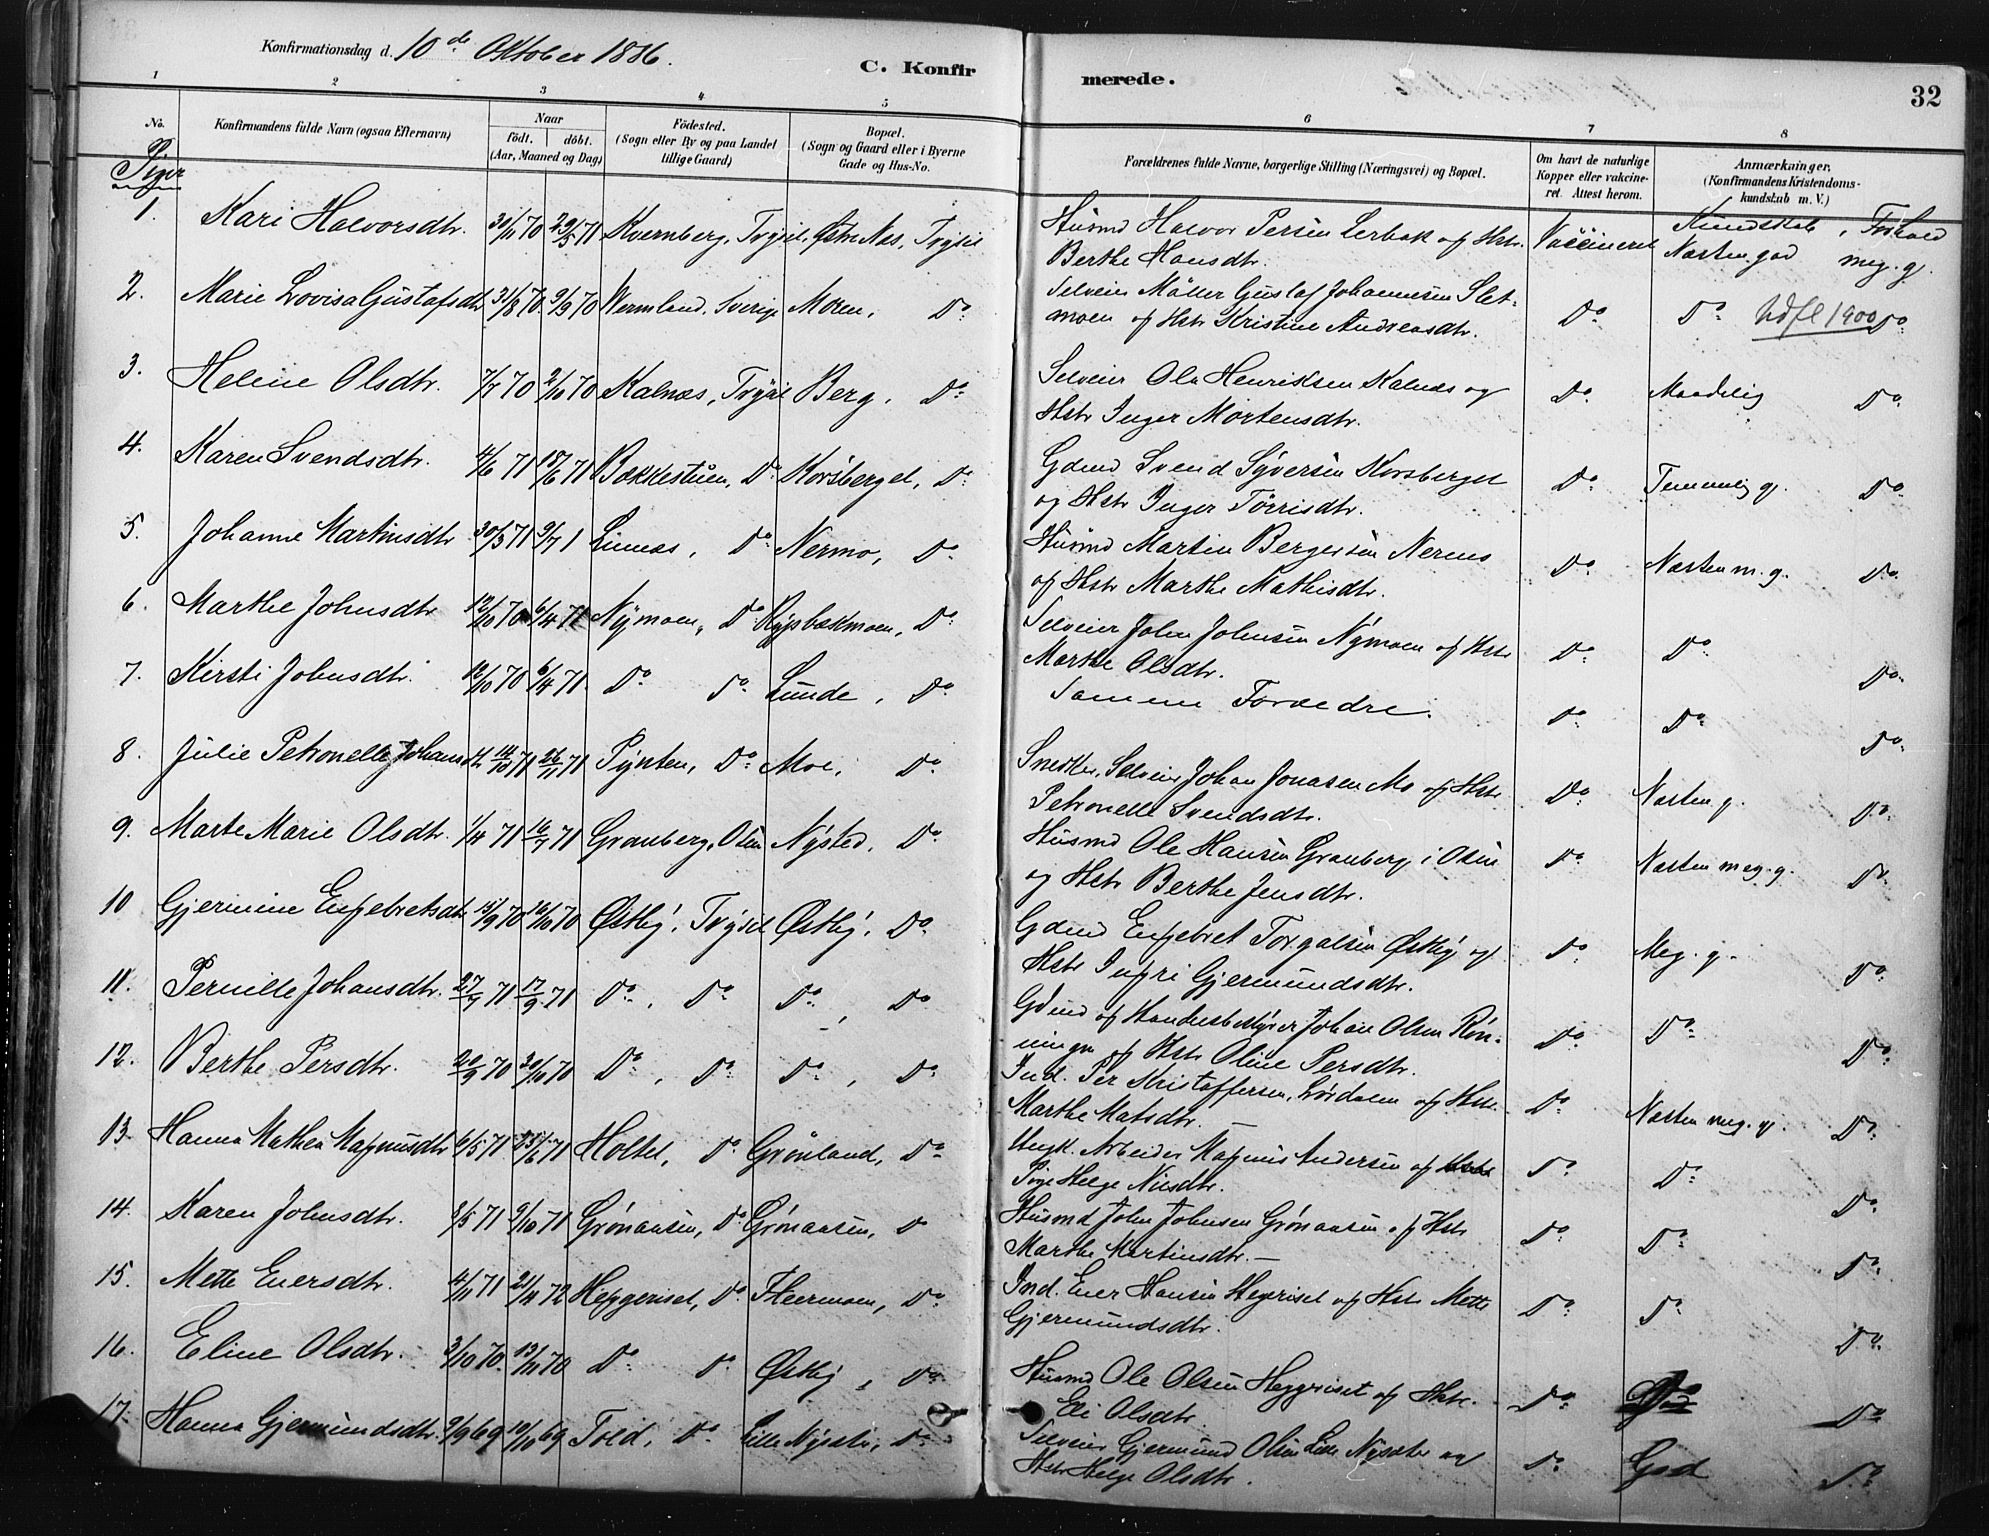 Konfirmationsdag d. 10de Oktober 1886. C. Konfirmerede. 32
1 2 3 4 5 6 7 8
No. Konfirmandens fulde Navn (ogsaa Efternavn) Naar födt. döbt. (Aar, Maaned og Dag) Födested. (Sogn eller By og paa Landet tillige Gaard) Bopæl. (Sogn og Gaard eller i Byerne Gade og Hus-No. Forældrenes fulde Navne, borgerlige Stilling (Næringsvei) og Bopæl. Om havt de naturlige Kopper eller vakcineret. Attest herom. Anmærkninger. (Konfirmandens Kristendomskundskab m. V.)
Piger
Kundskab, Forhold
1. Kari Halvorsdtr. 30/11 70 29/5 71 Kvernberg, Trysil, Østre Næs, Trysil Husmd Halvor Persen Lerbak og Hstr. Vaccineret Næsten god meg. g.
Berthe Hansdtr.
2. Marie Lovisa Gustafsdtr 31/8 70. 9/9 70 Wermland, Sverige Moren, Do. Selveier Möller Gustaf Johannesen Slet- Do. Do. Udfl 1900 Do.
moen og Hstr Kristine Andreasdtr.
3. Heline Olsdtr. 7/7 70 2/10 70 Kalnæs, Trysil Berg, Do. Selveier Ola Henriksen Kalnæs og Do. Maadelig Do.
Hstr Inger Mortensdtr.
4. Karen Svendsdtr. 4/6 71 18/6 71 Bakkestuen, Do Korsberget, Do. Gdmd Svend Syversen Korsberget Do. Temmelig g. Do.
og Hstr Inger Törrisdtr.
5. Johanne Martinsdtr 30/5 71 9/7 1 Linnæs, Do Nermo, Do. Husmd Martin Bergersen Nermo Do. Næsten m. g. Do.
og Hstr Marthe Mathisdtr.
6. Marthe Johnsdtr 12/10 70 6/4 71 Nymoen, Do Rypbækmoen, Do. Selveier John Johnsen Nymoen og Hstr Do. Do. Do.
Marthe Olsdtr.
7. Kirsti Johnsdtr. 12/10 70 6/4 71. Do Do. Lunde, Do. Samme Forældre. Do. Do. Do.
8. Julie Petronelle Johansdt. 14/10 71 26/11 71 Pynten, Do. Moe, Do. Snedker, Selveier Johan Jonasen Mo og Hstr. Do. Næsten g. Do.
Petronelle Svendsdtr.
9. Marte Marie Olsdtr. 1/4 71 16/7 71 Granberg, Osen Nysted, Do. Husmd Ole Hansen Granberg i Osen Do. Næsten meg. g. Do.
og Hstr Berthe Jensdtr.
10 Gjermine Engebretsdtr 15/9 70 16/10 70 Østby, Trysil Østby, Do. Gdmd Engebret Torgalsen Østby og Do Meg. g. Do.
Hstr Ingri Gjermundsdtr.
11. Pernille Johansdtr. 27/7 71 17/9 71 Do., Do. Do., Do Gdmd og Handelsbestyrer Johan Olsen Røn- Do. Do. Do.
ningen og Hstr Oline Persdtr.
12. Berthe Persdtr. 20/9 70 30/10 70 Do, Do. Do., Do. Ind. Per Kristoffersen, Lördalen og Hstr. Do. Næsten meg. g. Do.
Marthe Matsdtr.
13. Hanna Mathea Magnusdtr 6/5 71 25/6 71 Holtet, Do. Grønland, Do. Ungk. Arbeider Magnus Andersen og Do. Do. Do.
Pige Helge Nilsdtr.
14. Karen Johnsdtr. 2/5 71 9/10 71 Grönaasen, Do Grönaasen, Do Husmd John Johnsen Grönaasen og Hstr Do. Do. Do.
Marthe Martinsdtr.
15. Mette Enersdtr. 4/11 71 21/4 72 Heggeriset, Do. Fleermoen, Do. Ind. Ener Hansen Hegeriset og Hstr. Mette Do. Do Do.
Gjermundsdtr.
16. Eline Olsdtr. 3/10 70. 13/11 70 Do. Do. Østby, Do. Husmd Ole Olsen Heggeriset og Hstr. Do. Do Do.
Eli Olsdtr.
17. Hanna Gjermundsdtr. 9/9 69 10/10 69 Told, Do. Lille Nysæter, Do. Selveier Gjermund Olsen Lille Nysæter og Do. God Do.
Hstr Helge Olsdtr.